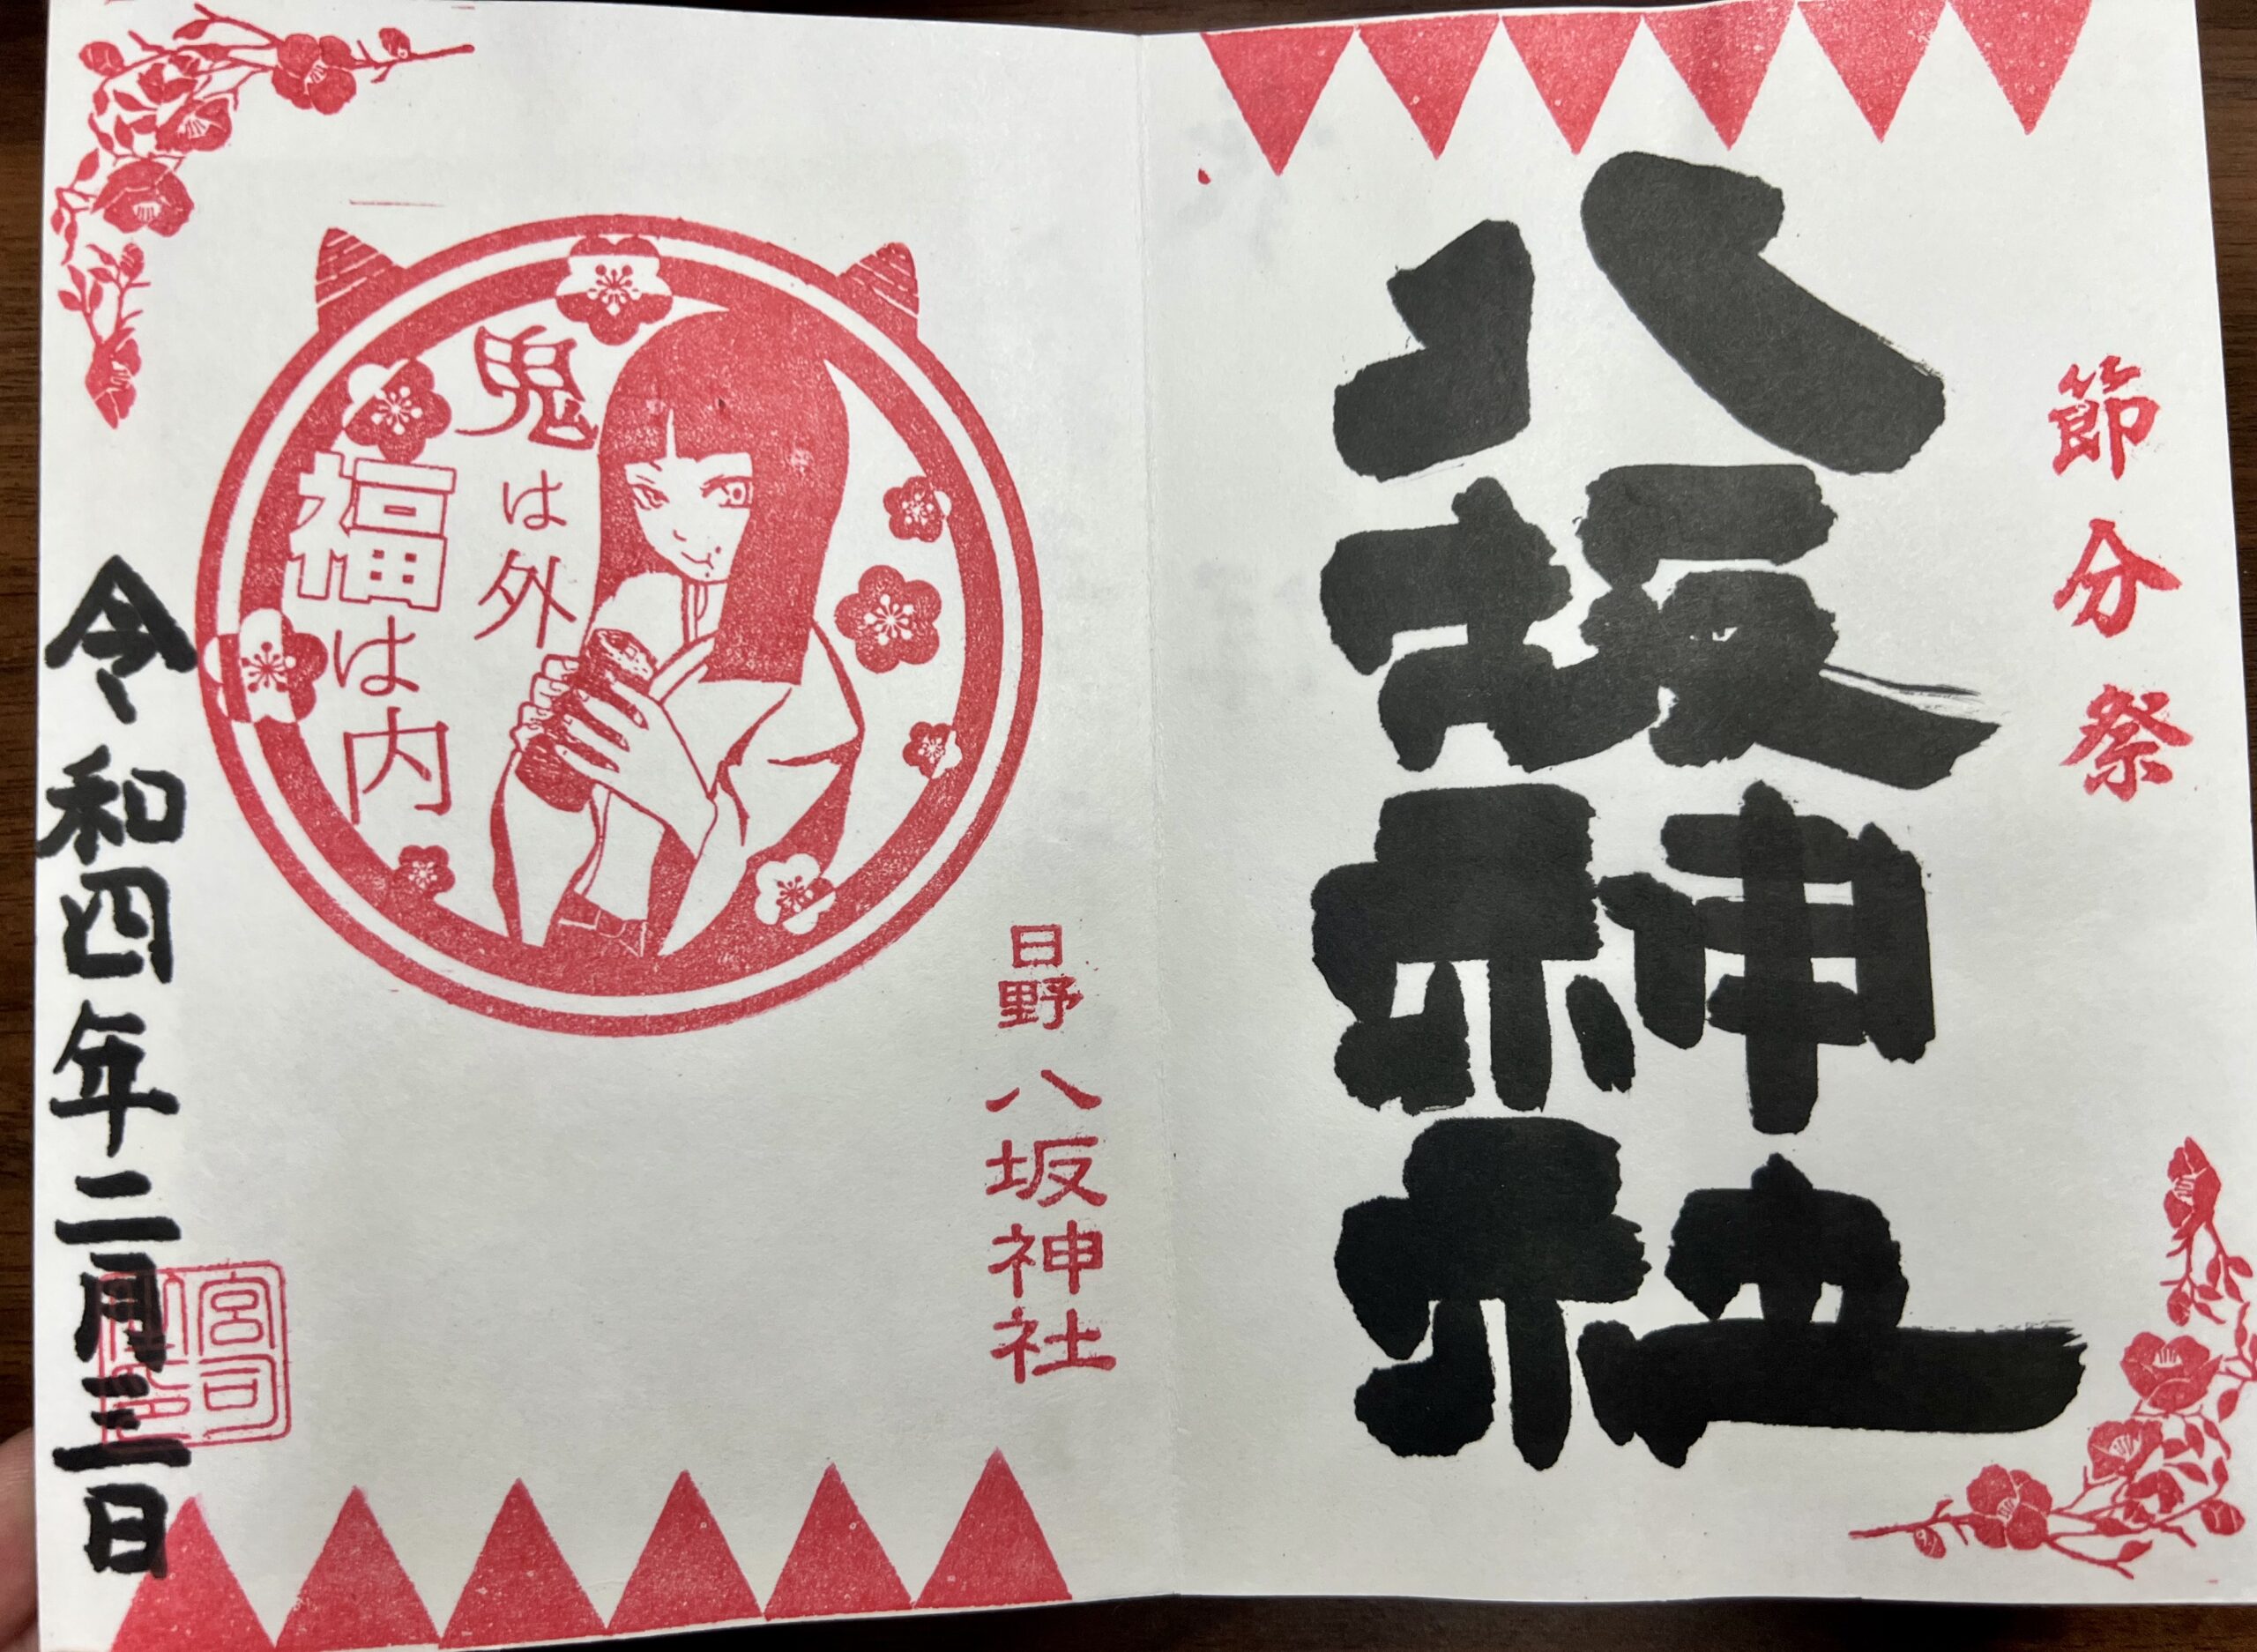 節分祭
八坂神社
日野 八坂神社
鬼は外
福は内
宮司
令和四年二月三日